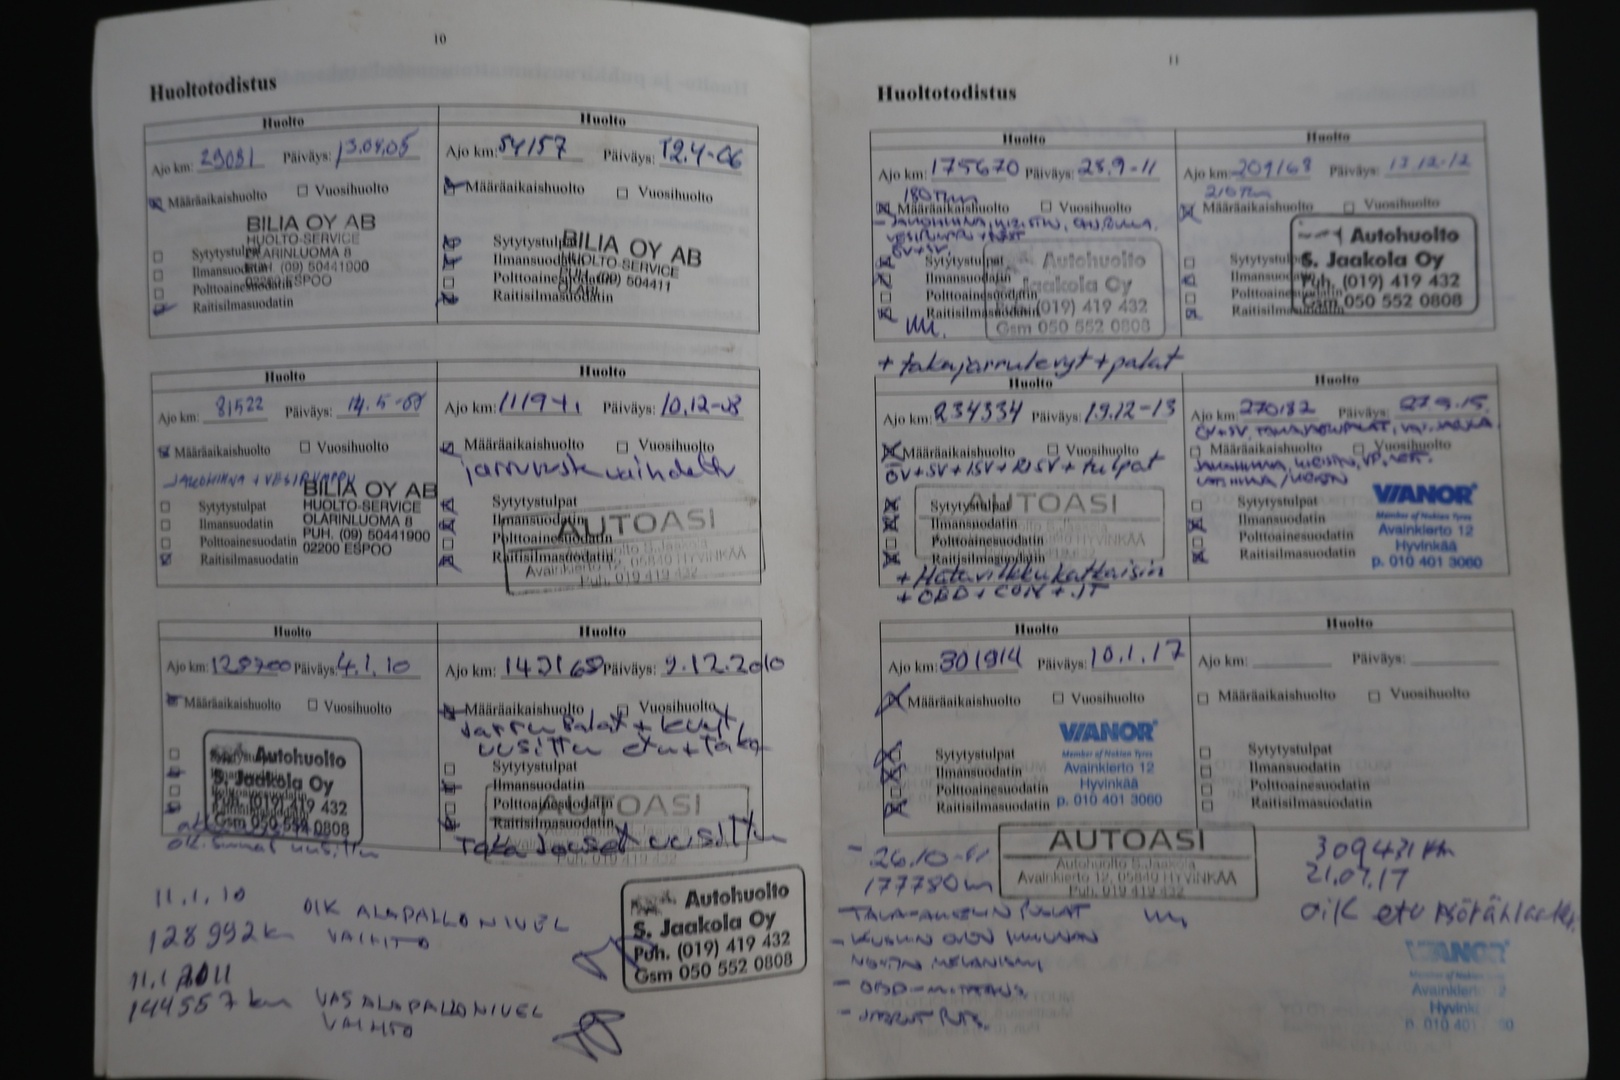 10
Huoltotodistus
Huolto
Ajo km: 29081 Päiväys: 13.04.05
Määräaikaishuolto Vuosihuolto
BILIA OY AB
HUOLTO-SERVICE
OLARINLUOMA 8
PUH. (09) 50441900
02200 ESPOO
Sytytystulpat
Ilmansuodatin
Polttoainesuodatin
Raitisilmasuodatin
Huolto
Ajo km: 54157 Päiväys: 12.4-06
Määräaikaishuolto Vuosihuolto
BILIA OY AB
HUOLTO-SERVICE
PUH. (09) 504411
Sytytystulpat
Ilmansuodatin
Polttoainesuodatin
Raitisilmasuodatin
Huolto
Ajo km: 81522 Päiväys: 14.5-07
Määräaikaishuolto Vuosihuolto
JAKOHIHNA + VESIPUMPPU
BILIA OY AB
HUOLTO-SERVICE
OLARINLUOMA 8
PUH. (09) 50441900
02200 ESPOO
Sytytystulpat
Ilmansuodatin
Polttoainesuodatin
Raitisilmasuodatin
Huolto
Ajo km: 111941 Päiväys: 10.12-08
Määräaikaishuolto Vuosihuolto
jarruneste vaihdettu
Sytytystulpat
Ilmansuodatin
Polttoainesuodatin
Raitisilmasuodatin
AUTOASI
Autohuolto S.Jaakola
Avainkierto 12, 05840 HYVINKÄÄ
Puh. 019 419 432
Huolto
Ajo km: 128700 Päiväys: 4.1.10
Määräaikaishuolto Vuosihuolto
Autohuolto
S. Jaakola Oy
Puh. (019) 419 432
Gsm 050 552 0808
oik. uusittu
Huolto
Ajo km: 143168 Päiväys: 9.12.2010
Määräaikaishuolto Vuosihuolto
Jarru palat + levyt
uusittu etu + taka
Sytytystulpat
Ilmansuodatin
Polttoainesuodatin
Raitisilmasuodatin
AUTOASI
Puh. 019 419 432
Taka jouset uusittu
11.1.10
128992 km OIK ALAPALLONIVEL
VAIHTO
11.1.2011
144557 km VAS ALAPALLONIVEL
VAIHTO
Autohuolto
S. Jaakola Oy
Puh. (019) 419 432
Gsm 050 552 0808
11
Huoltotodistus
Huolto
Ajo km: 175670 Päiväys: 28.9-11
180 Tkm
Määräaikaishuolto Vuosihuolto
ÖV+SV
Sytytystulpat
Ilmansuodatin
Polttoainesuodatin
Raitisilmasuodatin
Autohuolto
S. Jaakola Oy
Puh. (019) 419 432
Gsm 050 552 0808
+ takajarrulevyt + palat
Huolto
Ajo km: 209168 Päiväys: 13.12-12
210 Tkm
Määräaikaishuolto Vuosihuolto
Sytytystulpat
Ilmansuodatin
Polttoainesuodatin
Raitisilmasuodatin
Autohuolto
S. Jaakola Oy
Puh. (019) 419 432
Gsm 050 552 0808
Huolto
Ajo km: 234334 Päiväys: 19.12-13
Määräaikaishuolto Vuosihuolto
ÖV+SV+ISV+RISV+tulpat
Sytytystulpat
Ilmansuodatin
Polttoainesuodatin
Raitisilmasuodatin
AUTOASI
+ Hätävilkkukatkaisin
+ OBD + CON + JT
Huolto
Ajo km: 270182 Päiväys: 27.9.15
Määräaikaishuolto Vuosihuolto
Sytytystulpat
Ilmansuodatin
Polttoainesuodatin
Raitisilmasuodatin
VIANOR
Member of Nokian Tyres
Avainkierto 12
Hyvinkää
p. 010 401 3060
Huolto
Ajo km: 301914 Päiväys: 10.1.17
Määräaikaishuolto Vuosihuolto
Sytytystulpat
Ilmansuodatin
Polttoainesuodatin
Raitisilmasuodatin
VIANOR
Member of Nokian Tyres
Avainkierto 12
Hyvinkää
p. 010 401 3060
Huolto
Ajo km: Päiväys:
Määräaikaishuolto Vuosihuolto
Sytytystulpat
Ilmansuodatin
Polttoainesuodatin
Raitisilmasuodatin
- 26.10-11
177780 km
- OBD-MITTAUS
AUTOASI
Autohuolto S.Jaakola
Avainkierto 12, 05840 HYVINKÄÄ
Puh. 019 419 432
309431 km
21.07.17
oik etu
VIANOR
Avainkierto 12
Hyvinkää
p. 010 401